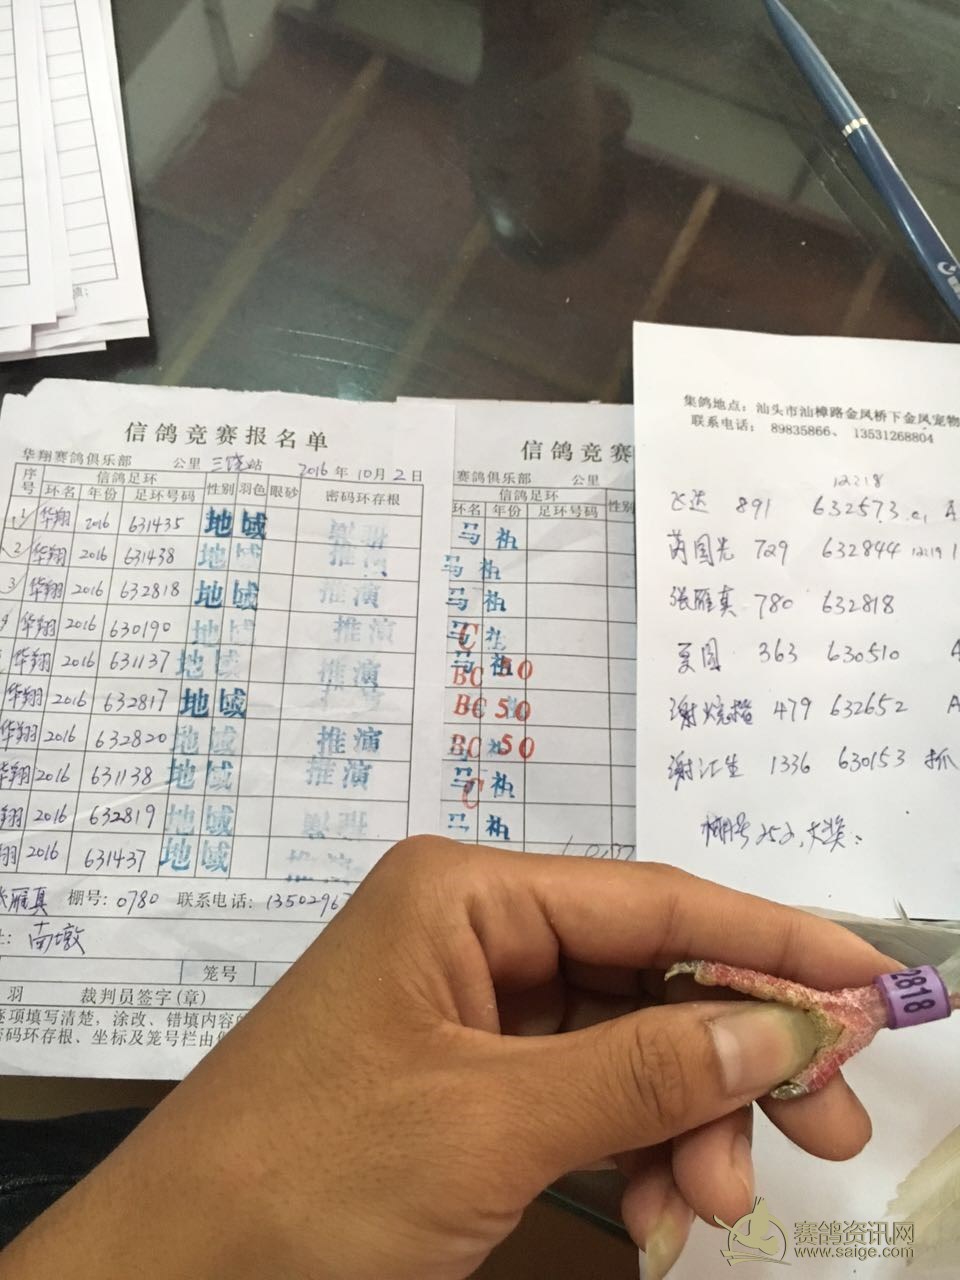 信鸽竞赛报名单
华翔赛鸽俱乐部 公里 三饶站 2016年10月2日
序号 信鸽足环 性别 羽色 眼砂 密码环存根
环名 年份 足环号码
1 华翔 2016 631435 地域
2 华翔 2016 631438 地域 推演
3 华翔 2016 632818 地域 推演
华翔 2016 630190 地域 推演
华翔 2016 631137 地域 推演
华翔 2016 632817 地域
华翔 2016 632820 地域 推演
华翔 2016 631138 地域 推演
翔 2016 632819 地域
翔 2016 631437 地域 推演
张雁真 棚号:0780 联系电话:1350296
址: 南墩
笼号
羽 裁判员签字(章)
逐项填写清楚，涂改、错填内容的
密码环存根、坐标及笼号栏由
信鸽竞赛
赛鸽俱乐部 公里
信鸽足环 性别
环名 年份 足环号码
马
马
马
C
马 BC 50
BC 50
BC 50
马
C
马
集鸽地点：汕头市汕樟路金凤桥下金凤宠物
联系电话：89835866、13531268804
12:18
飞达 891 632573
芮国光 729 632844 12:19
张雁真 780 632818
夏园 363 630510 A
谢烧楷 479 632652 A
谢汇生 1336 630153 抓
棚号252,大奖:
2818
赛鸽资讯网
www.saige.com